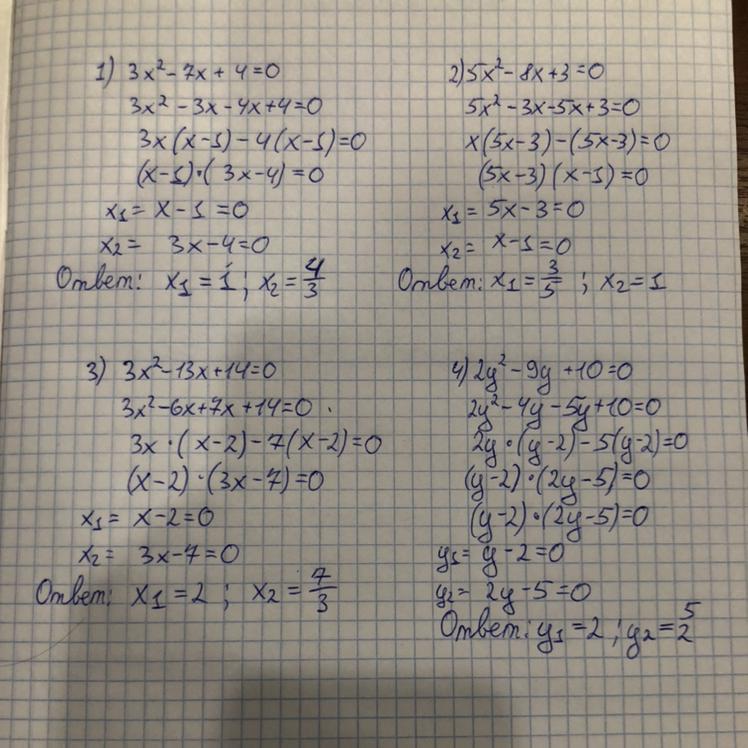 1) 3x² - 7x + 4 = 0
3x² - 3x - 4x + 4 = 0
3x(x-1) - 4(x-1) = 0
(x-1)·(3x-4) = 0
x₁ = x - 1 = 0
x₂ = 3x - 4 = 0
Ответ: x₁ = 1; x₂ = 4/3
2) 5x² - 8x + 3 = 0
5x² - 3x - 5x + 3 = 0
x(5x-3) - (5x-3) = 0
(5x-3)(x-1) = 0
x₁ = 5x - 3 = 0
x₂ = x - 1 = 0
Ответ: x₁ = 3/5; x₂ = 1
3) 3x² - 13x + 14 = 0
3x² - 6x + 7x + 14 = 0
3x·(x-2) - 7(x-2) = 0
(x-2)·(3x-7) = 0
x₁ = x - 2 = 0
x₂ = 3x - 7 = 0
Ответ: x₁ = 2; x₂ = 7/3
4) 2y² - 9y + 10 = 0
2y² - 4y - 5y + 10 = 0
2y·(y-2) - 5(y-2) = 0
(y-2)·(2y-5) = 0
(y-2)·(2y-5) = 0
y₁ = y - 2 = 0
y₂ = 2y - 5 = 0
Ответ: y₁ = 2; y₂ = 5/2